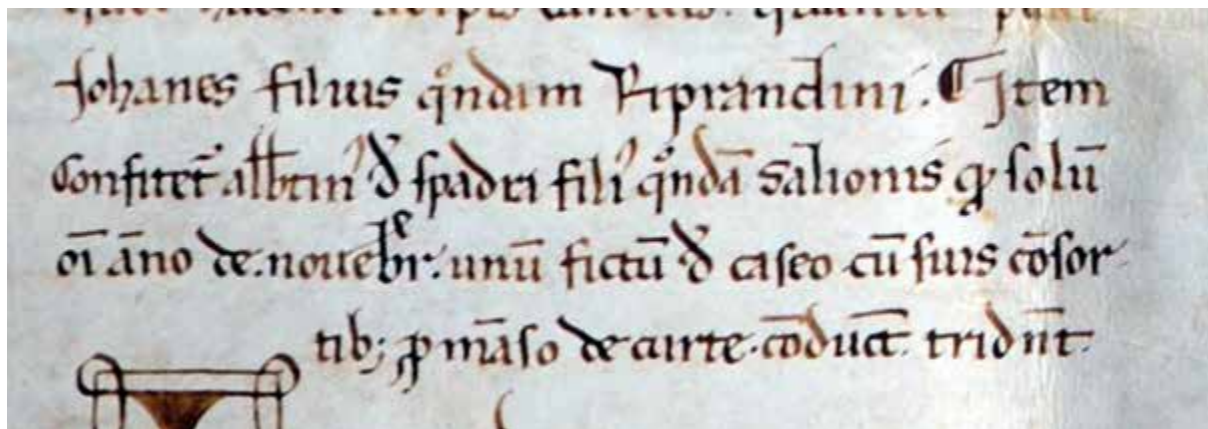 Johanes filius qͦndam Riprandini. ¶ Item
Confitet᷑ alb̄tin᾽ d̄ spadri fili᾽ qͦndā salionis qꝺ solū
oī āno de.nouebr̄. unū fictū d̄ caseo cū suis cōsor
tib; ꝓ māso de curte.cōduct̄. tridn̄t.